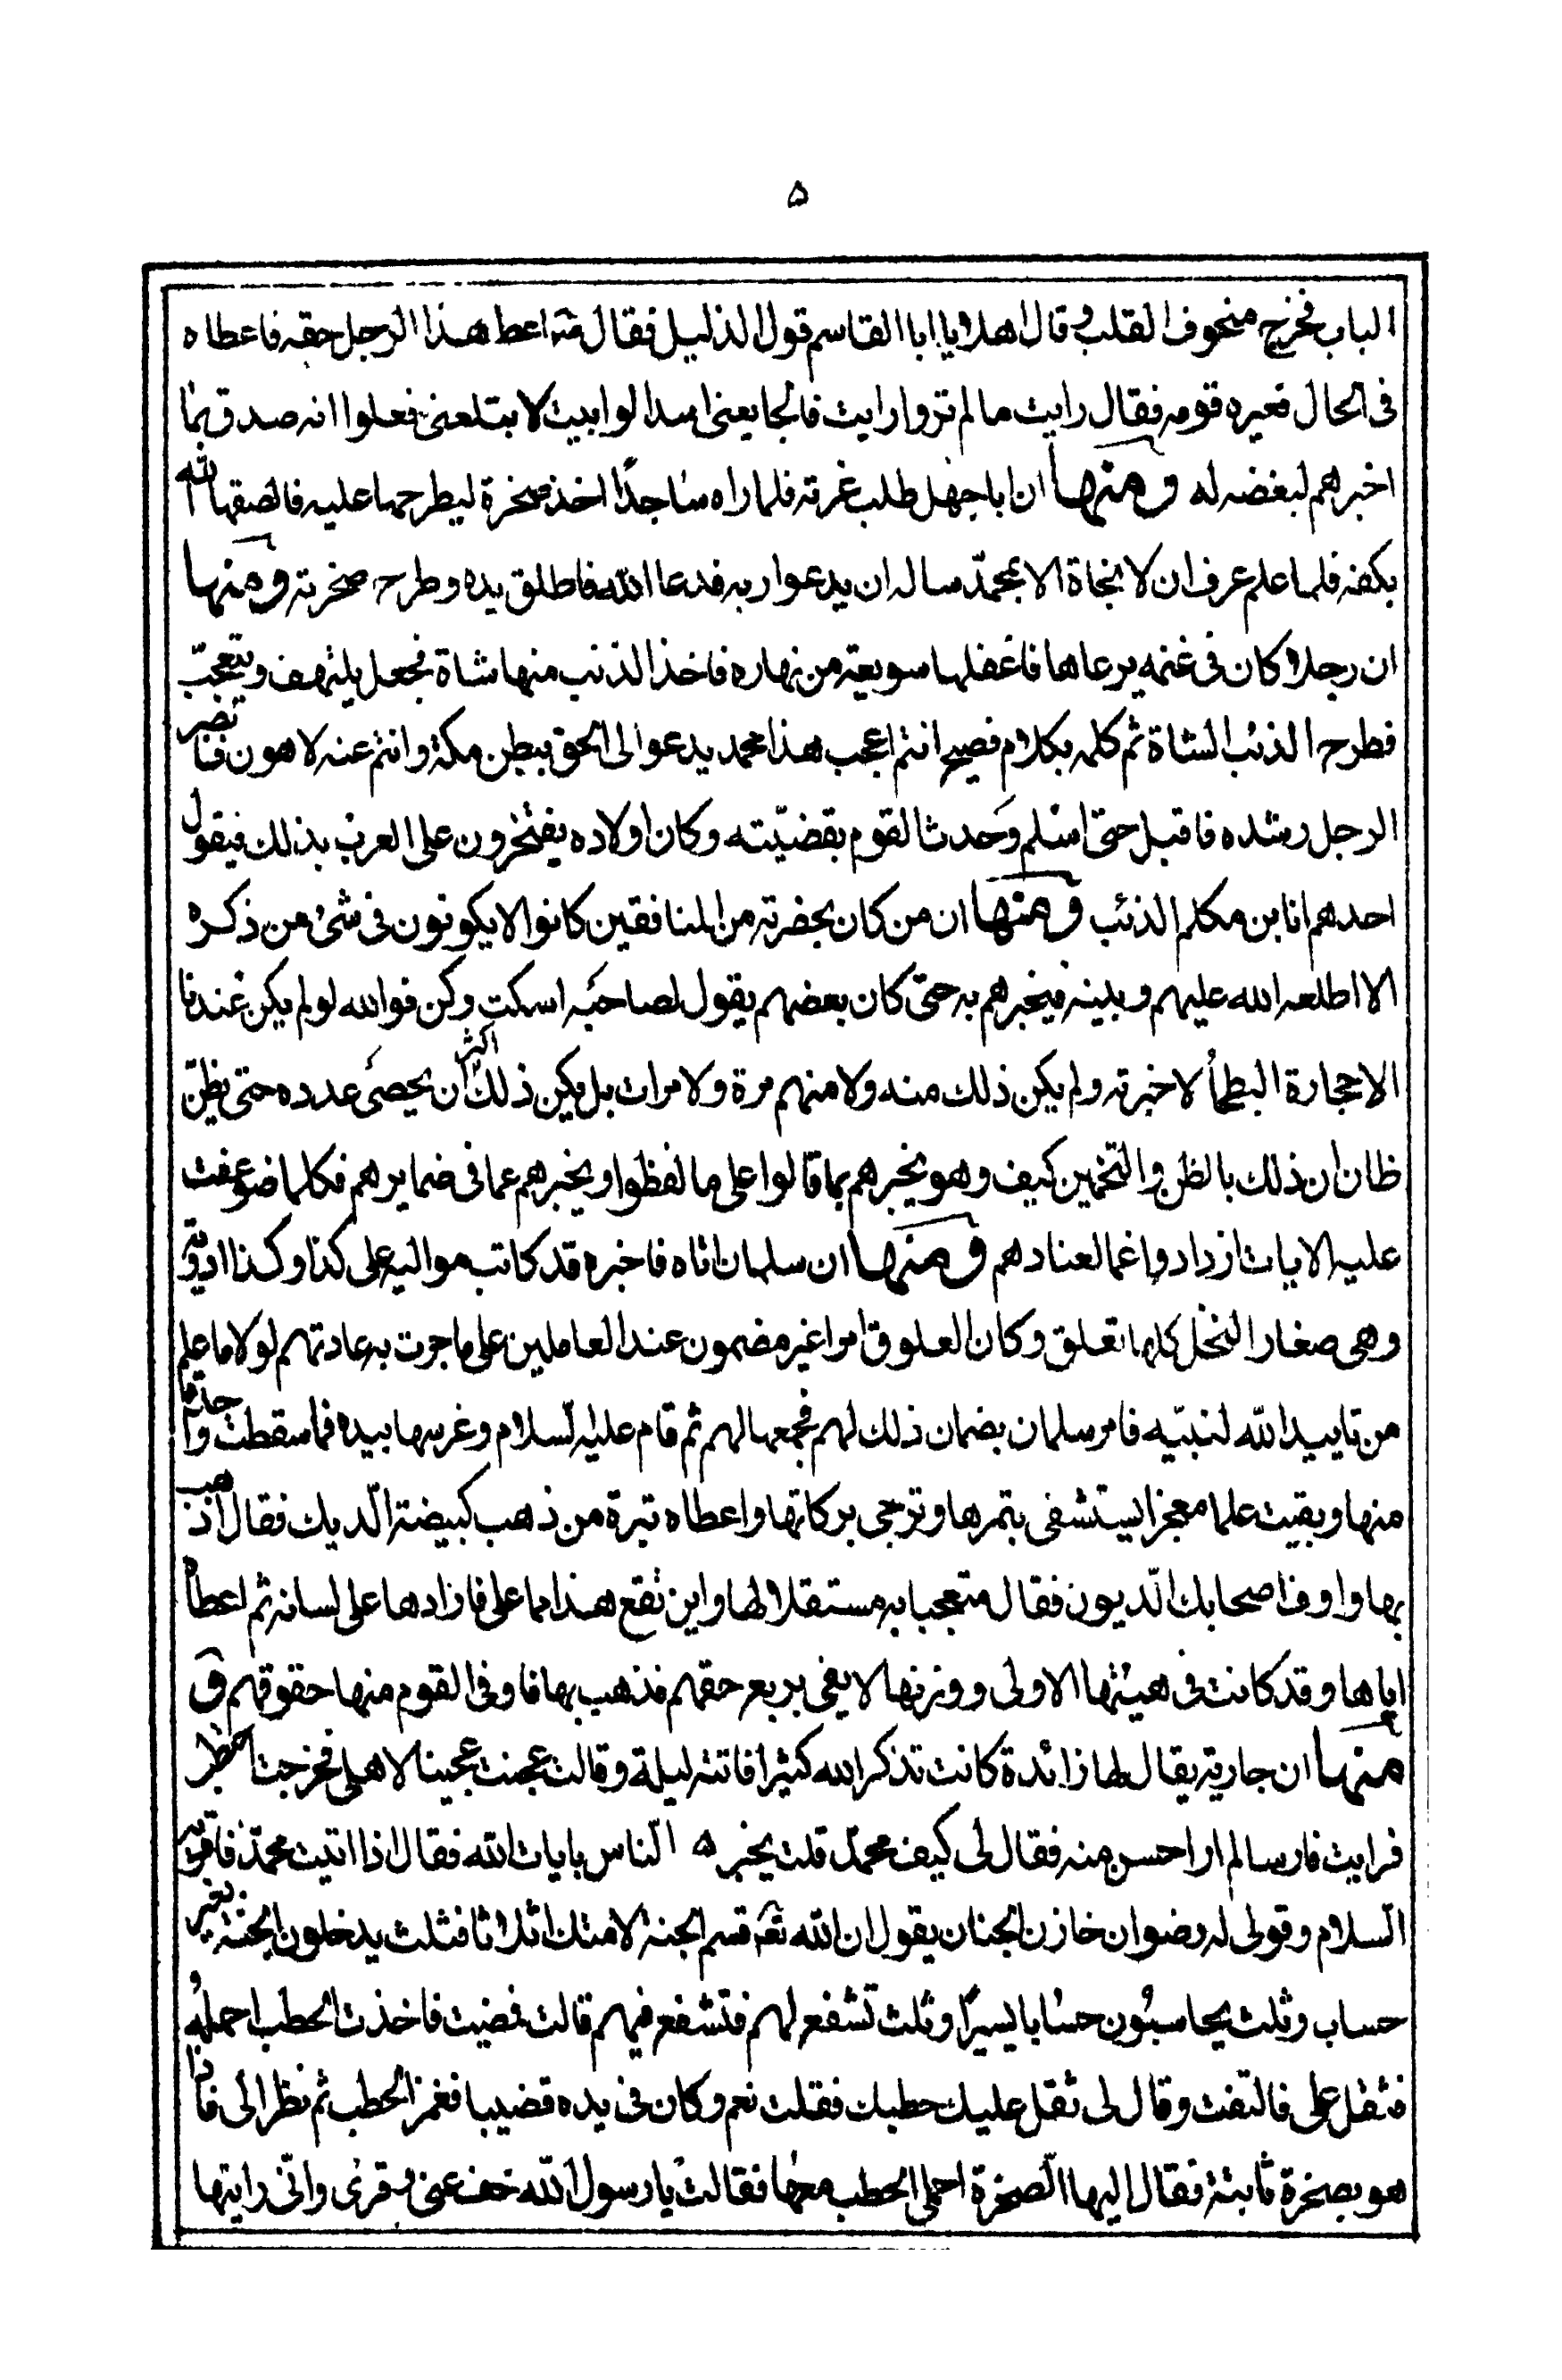 ۵
الباب فخرج منخوف القلب وقال اهلا يا ابا القاسم قول الذليل فقال له اعط هذا الرجل حقه فاعطاه
فى الحال فعيره قومه فقال رايت ما لم تروا رايت فالجا يعنى اسدا لو ابيت لابتلعنى فعلوا انه صدق بما
اخبرهم لبغضه له ومنها ان ابا جهل طلب غرته فلما راه ساجدًا اخذ صخرة ليطرحها عليه فالصقها الله
بكفه فلما علم عرف ان لا نجاة الا بمحمّد ساله ان يدعوا ربه فدعا الله فاطلق يده وطرح صخرته ومنها
ان رجلا كان فى غنمه يرعاها فاغفلها سويعة من نهاره فاخذ الذئب منها شاة فجعل يلتهف ويتعجّب
فطرح الذئب الشاة ثم كلمه بكلام فصيح انتم اعجب هذا محمد يدعوا الى الحق ببطن مكة وانتم عنه لاهون فابصر
الرجل رشده فاقبل حتى اسلم وحدث القوم بقضيّته وكان اولاده يفتخرون على العرب بذلك فيقول
احدهم انا بن مكلم الذئب ومنها ان من كان بحضرته من المنافقين كانوا لا يكونون فى شئ من ذكره
الا اطلعه الله عليهم وبينه فيخبرهم به حتى كان بعضهم يقول لصاحبه اسكت وكن فوالله لو لم يكن عندنا
الا حجارة البطحأ لاخبرته ولم يكن ذلك منه ولا منهم مرة ولا مرات بل يكن ذلك اكثر ان يحصى عدده حتى يظنّ
ظان ان ذلك بالظن والتخمين كيف وهو يخبرهم بما قالوا على ما لفظوا ويخبرهم عما فى ضمايرهم فكلما ضوعفت
عليه الايات ازدادوا غما لعنادهم ومنها ان سلمان اتاه فاخبره قد كاتب مواليه على كذا وكذا ودية
وهى صغار النخل كلها تعلق وكان العلوق امرا غير مضمون عند العاملين على ما جرت به عادتهم لولا ما علم
من تاييد الله لنبيّه فامر سلمان بضمان ذلك لهم فجمعها لهم ثم قام عليه السلام وغرسها بيده فما سقطت واحدة
منها وبقيت علما معجزا يستشفى بتمرها وترجى بركاتها واعطاه تبرة من ذهب كبيضة الديك فقال اذهب
بها واوف اصحابك الديون فقال متعجبا به مستقلا لها واين تقع هذا مما على فازادها على لسانه ثم اعطاه
اياها وقد كانت فى هيئتها الاولى ووزنها لا يفى بربع حقهم فذهب بها فاوفى القوم منها حقوقهم و
منها ان جارية يقال لها زائدة كانت تذكر الله كثيرا فاتته ليلة وقالت عجنت عجينا لاهلى فخرجت احتطب
فرايت فارسا لم ار احسن منه فقال لى كيف محمّد قلت يخبر ه الناس بايات الله فقال اذا اتيت محمّد فاقرئيه
السلام وقولى له رضوان خازن الجنان يقول ان الله تعه قسم الجنة لامتك اثلاثا فثلث يدخلون الجنة بغير
حساب وثلث يحاسبون حسابا يسيرًا وثلث تشفع لهم فتشفع فيهم قالت فمضيت فاخذت الحطب احمله و
فثقل على فالتفت وقال لى ثقل عليك حطبك فقلت نعم وكان فى يده قضيبا فغمز الحطب ثم نظر الى فاذا
هو بصخرة ثابتة فقال اليها الصخرة احملى الحطب معها فقالت يا رسول الله خف عنى وقرى وانّى رايتها